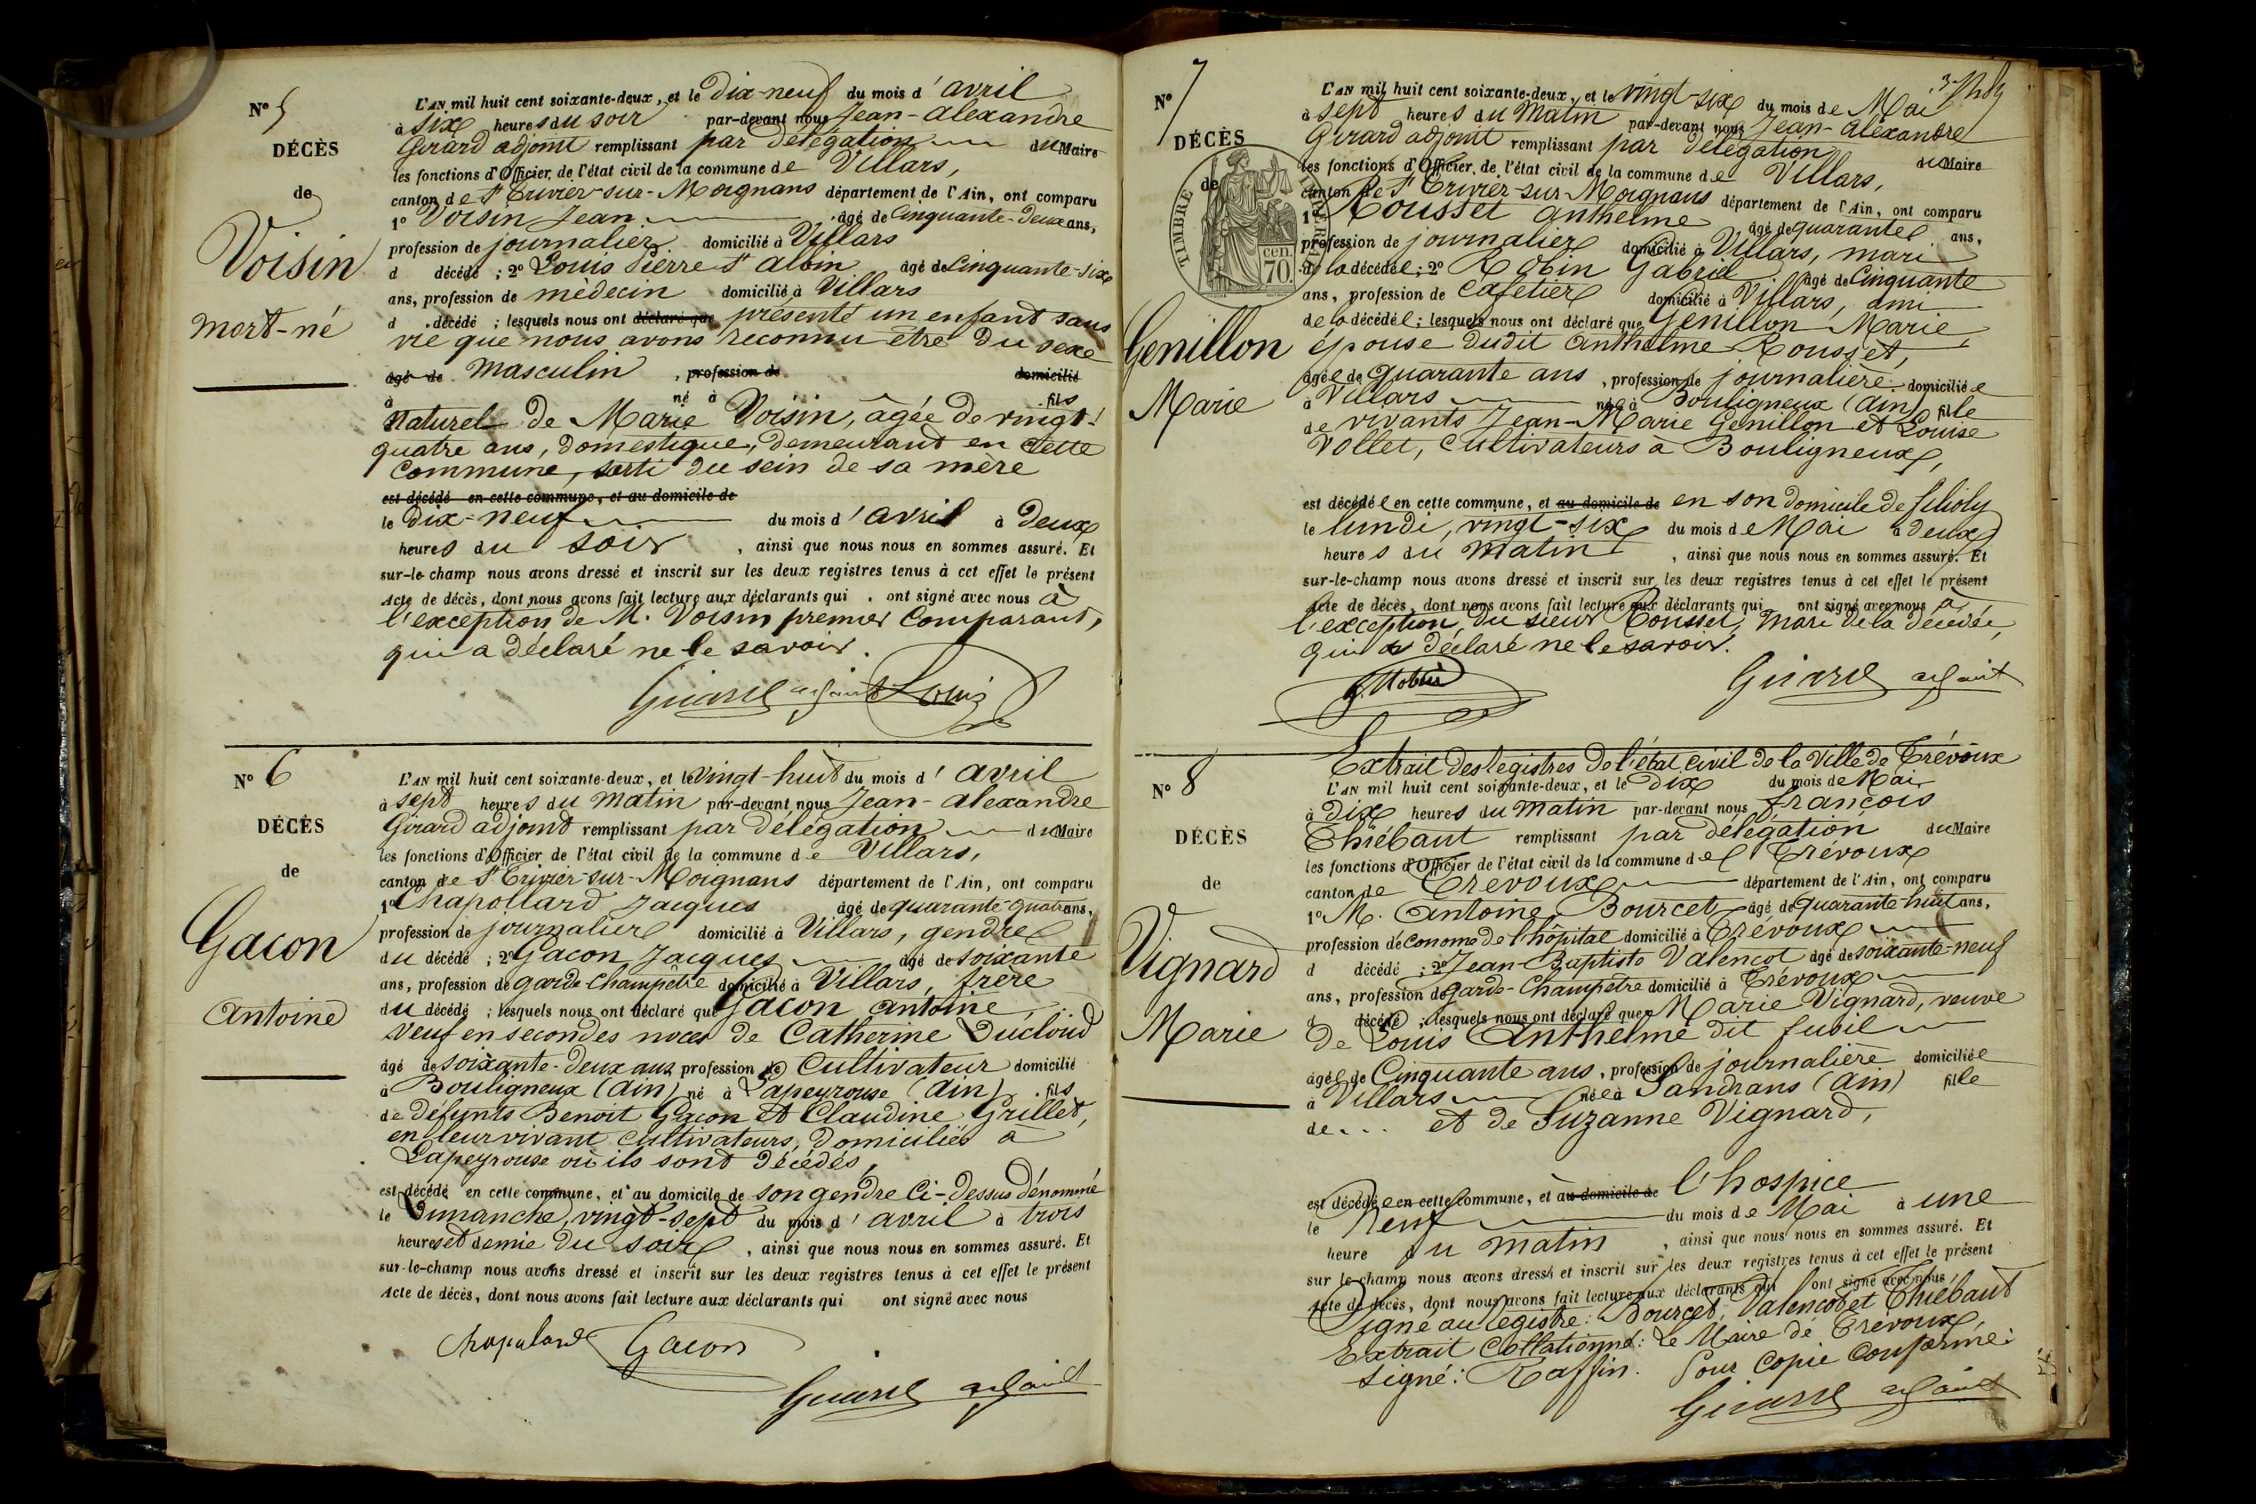 N° 5
DÉCÈS
de
Voisin
mort-né
L'AN mil huit cent soixante-deux, et le dix-neuf du mois d'avril
à six heures du soir par-devant nous Jean-Alexandre
Girard adjoint remplissant par délégation du Maire
les fonctions d'Officier de l'état civil de la commune de Villars,
canton de St Trivier-sur-Moignans département de l'Ain, ont comparu
1° Voisin Jean âgé de Cinquante-Deux ans,
profession de journalier domicilié à Villars
d décédé ; 2° Louis Pierre St Albin âgé de Cinquante-six
ans, profession de médecin domicilié à Villars
d décédé ; lesquels nous ont déclaré que présenté un enfant sans
vie que nous avons reconnu être Du sexe
âgé de masculin , profession de domicilié
à né à fils
naturel de Marie Voisin, âgée de vingt-
quatre ans, Domestique, demeurant en cette
Commune, sorti du sein de sa mère
est décédé en cette commune, et au domicile de
le dix-neuf du mois d'avril à Deux
heures du soir , ainsi que nous nous en sommes assuré. Et
sur-le-champ nous avons dressé et inscrit sur les deux registres tenus à cet effet le présent
Acte de décès, dont nous avons fait lecture aux déclarants qui ont signé avec nous à
l'exception de M. Voisin premier Comparant,
qui a déclaré ne le savoir.
Girard adjoint Louis
N° 6
DÉCÈS
de
Gacon
Antoine
L'AN mil huit cent soixante-deux, et le vingt-huit du mois d'avril
à sept heures du matin par-devant nous Jean-Alexandre
Girard adjoint remplissant par délégation du Maire
les fonctions d'Officier de l'état civil de la commune de Villars,
canton de St Trivier-sur-Moignans département de l'Ain, ont comparu
1° Chapollard Jacques âgé de quarante-quatre ans,
profession de journalier domicilié à Villars, gendre
du décédé ; 2° Gacon Jacques âgé de soixante
ans, profession de garde Champêtre domicilié à Villars, frère
du décédé ; lesquels nous ont déclaré que Gacon Antoine,
veuf en secondes noces de Catherine Ducloud
âgé de soixante-deux ans profession de Cultivateur domicilié
à Bouligneux (Ain) né à Lapeyrouse (Ain) fils
de défunts Benoit Gacon et Claudine Grillet,
en leur vivant Cultivateurs, domiciliés à
Lapeyrouse où ils sont décédés,
est décédé en cette commune, et au domicile de son gendre Ci-dessus dénommé
le Dimanche, vingt-sept du mois d'avril à trois
heures et demie du soir , ainsi que nous nous en sommes assuré. Et
sur-le-champ nous avons dressé et inscrit sur les deux registres tenus à cet effet le présent
Acte de décès, dont nous avons fait lecture aux déclarants qui ont signé avec nous
Chapolard Gacon
Girard adjoint
N° 7
DÉCÈS
de
TIMBRE
cen.
70.
Genillon
Marie
L'AN mil huit cent soixante-deux, et le vingt-six du mois de Mai
à sept heures du Matin par-devant nous Jean-Alexandre
Girard adjoint remplissant par délégation du Maire
les fonctions d'Officier de l'état civil de la commune de Villars,
canton de St Trivier-sur-Moignans département de l'Ain, ont comparu
1° Rousset Anthelme âgé de quarante ans,
profession de journalier domicilié à Villars, mari
de la décédée ; 2° Robin Gabriel âgé de Cinquante
ans, profession de Cafetier domicilié à Villars, ami
de la décédée ; lesquels nous ont déclaré que Genillon Marie,
épouse dudit Anthelme Rousset,
âgée de quarante ans , profession de journalière domiciliée
à Villars née à Bouligneux (Ain) fille
de vivants Jean-Marie Genillon et Louise
Vollet, Cultivateurs à Bouligneux,
est décédée en cette commune, et au domicile de en son domicile de
le lundi, vingt-six du mois de Mai à deux
heures du matin , ainsi que nous nous en sommes assuré. Et
sur-le-champ nous avons dressé et inscrit sur les deux registres tenus à cet effet le présent
Acte de décès, dont nous avons fait lecture aux déclarants qui ont signé avec nous à
l'exception, du sieur Rousset, mari de la décédée,
qui a déclaré ne le savoir.
G. Robin Girard adjoint
N° 8
DÉCÈS
de
Vignard
Marie
Extrait des registres de l'état civil de la Ville de Trévoux
L'AN mil huit cent soixante-deux, et le Dix du mois de Mai
à Dix heures du Matin par-devant nous françois
Thiébaut remplissant par délégation du Maire
les fonctions d'Officier de l'état civil de la commune de Trévoux
canton de Trévoux département de l'Ain, ont comparu
1° M. Antoine Bourcet âgé de quarante-huit ans,
profession d'économe de l'hôpital domicilié à Trévoux
d décédé ; 2° Jean-Baptiste Valencot âgé de soixante-neuf
ans, profession de garde-Champêtre domicilié à Trévoux
d décédé ; lesquels nous ont déclaré que Marie Vignard, veuve
de Louis Anthelme dit fusil
âgée de Cinquante ans , profession de journalière domiciliée
à Villars née à Sandrans (Ain) fille
de . . . et de Suzanne Vignard,
est décédée en cette commune, et au domicile de à l'hospice
le Neuf du mois de Mai à une
heure du matin , ainsi que nous nous en sommes assuré. Et
sur-le-champ nous avons dressé et inscrit sur les deux registres tenus à cet effet le présent
Acte de décès, dont nous avons fait lecture aux déclarants qui ont signé avec nous,
Signé au registre: Bourcet, Valencot et Thiébaut
Extrait Collationné: Le Maire de Trévoux,
signé: Raffin. Pour Copie Conforme:
Girard adjoint